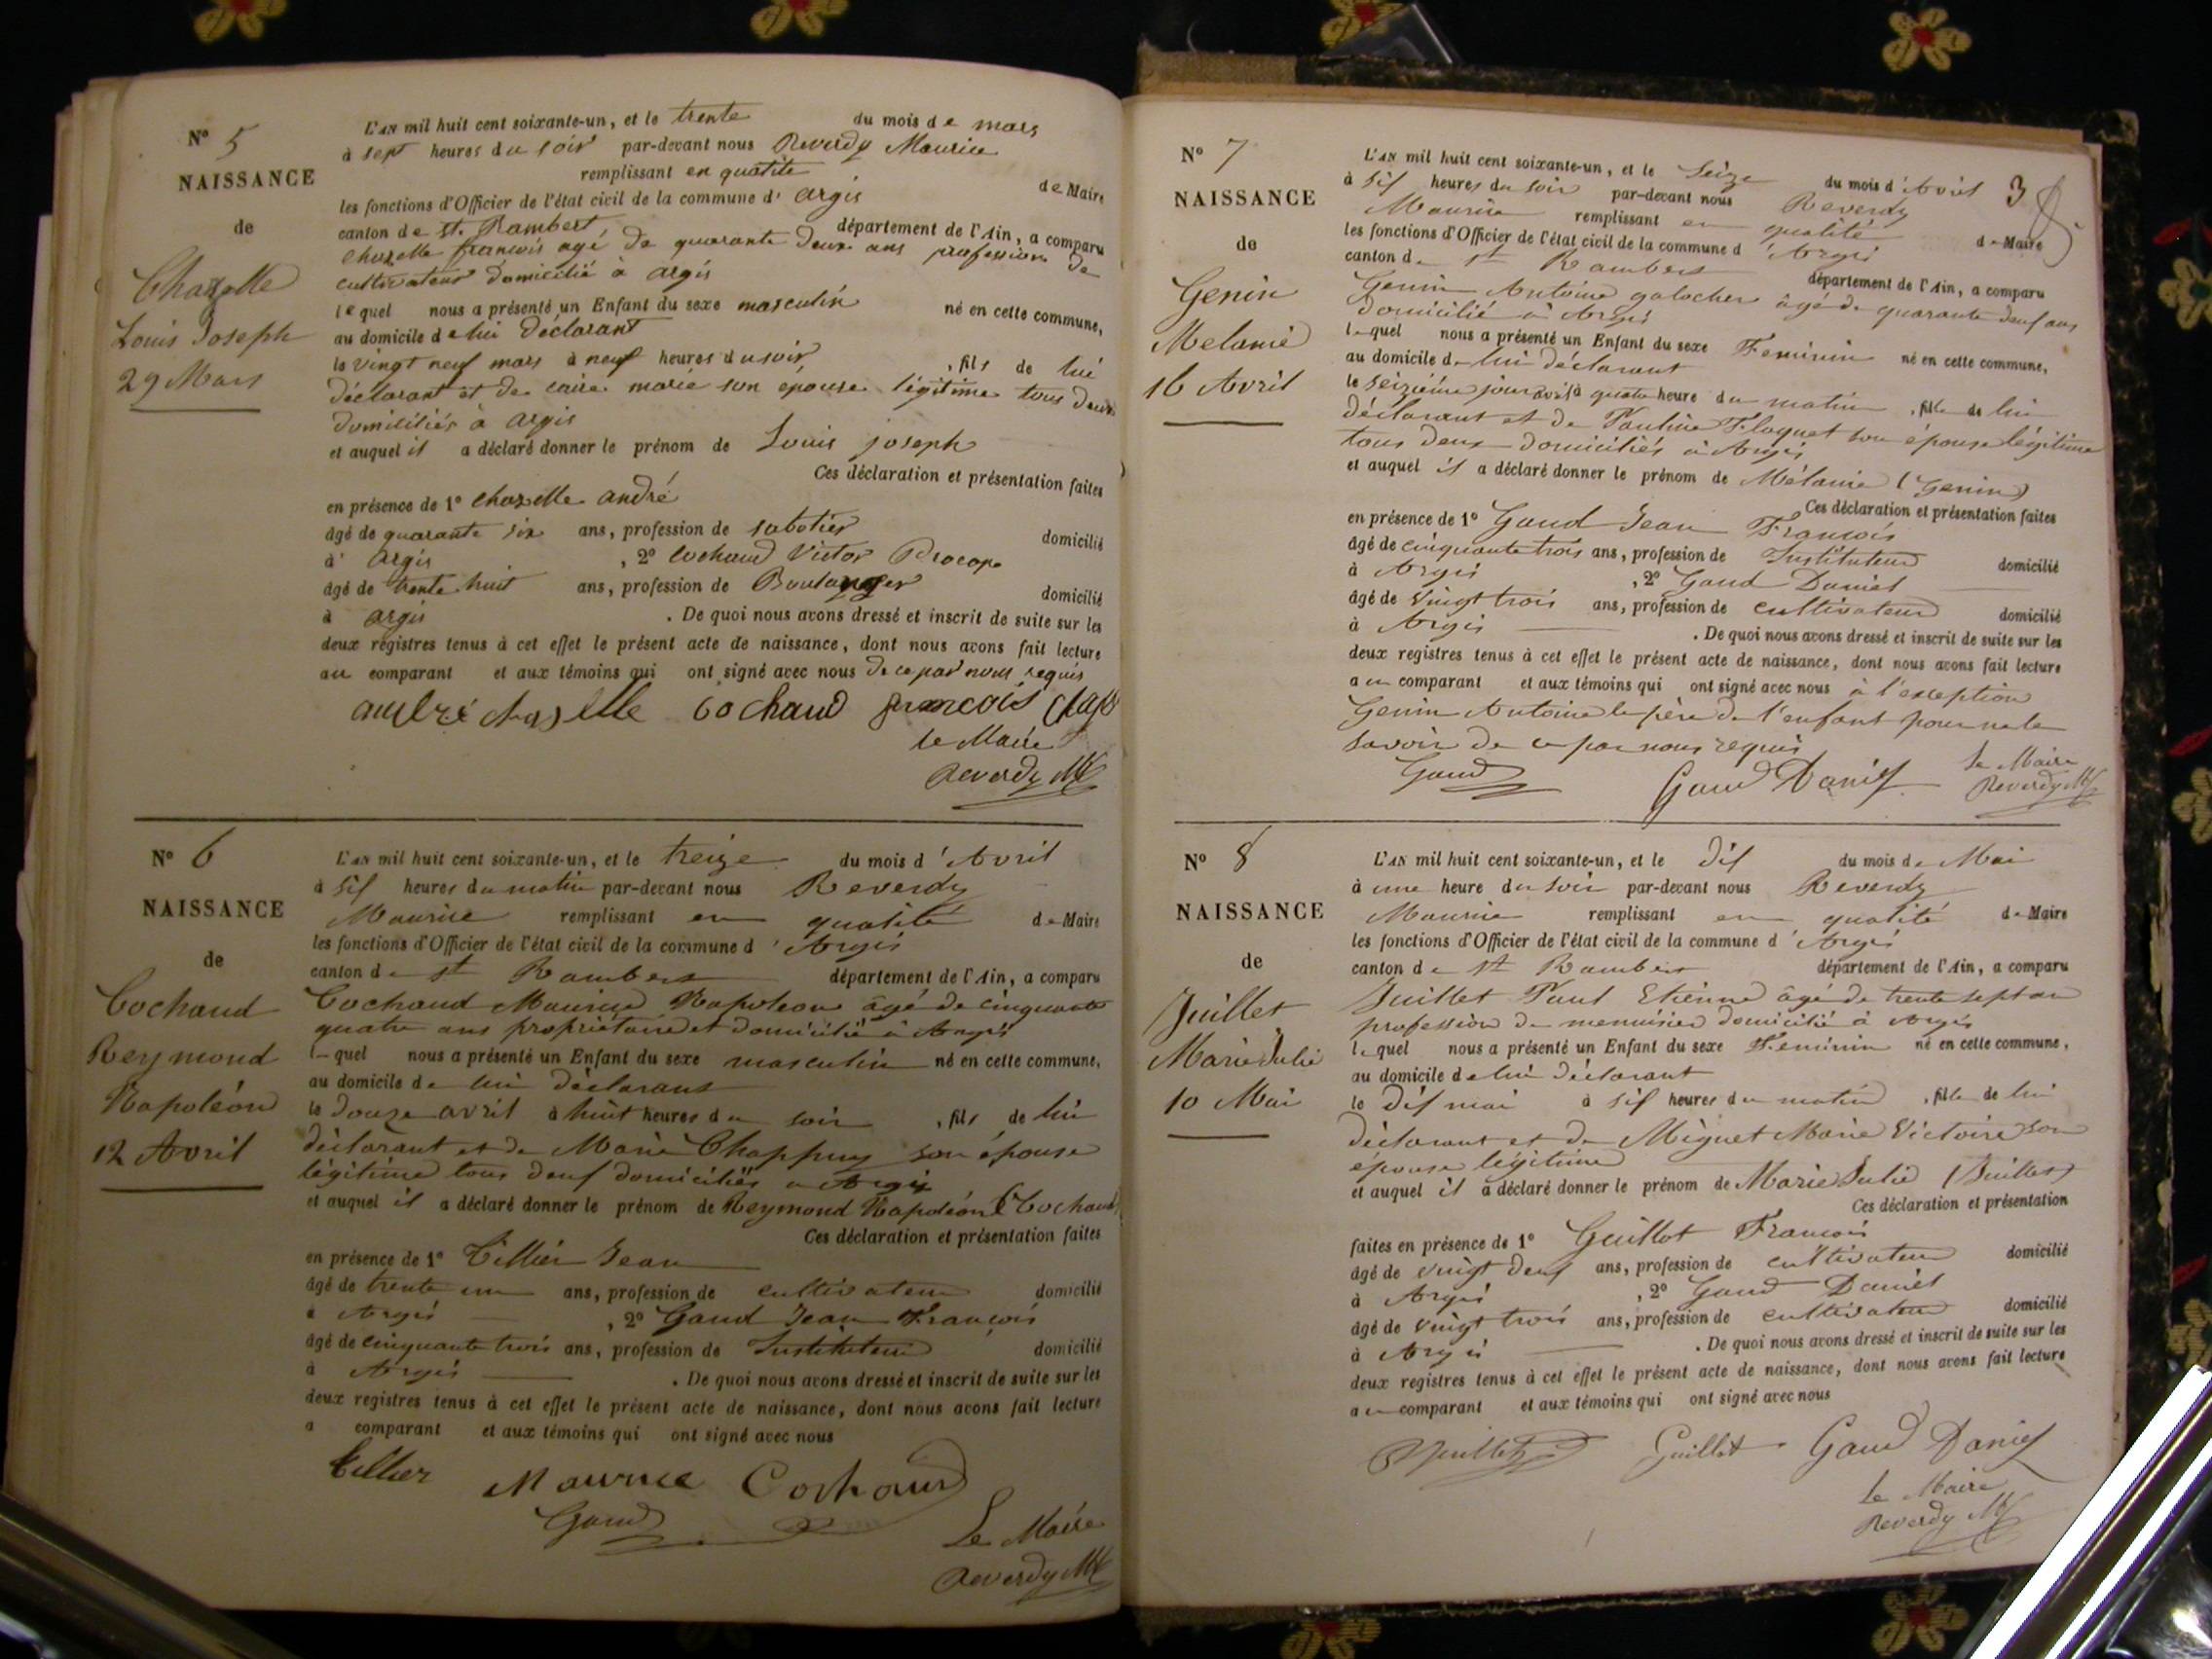 N° 5
NAISSANCE
de
Chazelle
Louis Joseph
29 Mars
L'AN mil huit cent soixante-un, et le trente du mois de mars
à sept heures du soir par-devant nous Reverdy Maurice
remplissant en qualité de Maire
les fonctions d'Officier de l'état civil de la commune d' argis
canton de st. Rambert département de l'Ain, a comparu
chazelle francois agé de quarante deux ans profession de
cultivateur domicilié à argis
lequel nous a présenté un Enfant du sexe masculin né en cette commune,
au domicile de lui déclarant
le vingt neuf mars à neuf heures du soir, fils de lui
déclarant et de caire marie son epouse légitime tous deux
domiciliés à argis
et auquel il a déclaré donner le prénom de Louis joseph
Ces déclaration et présentation faites
en présence de 1° chazelle andré
âgé de quarante six ans, profession de sabotier domicilié
à argis, 2° cochaud Victor Procope
âgé de trente huit ans, profession de Boulanger domicilié
à argis. De quoi nous avons dressé et inscrit de suite sur les
deux régistres tenus à cet effet le présent acte de naissance, dont nous avons fait lecture
au comparant et aux témoins qui ont signé avec nous de ce par nous requis
andré chazelle cochaud francois
le Maire
Reverdy M
N° 6
NAISSANCE
de
Cochaud
Reymond
Napoléon
12 Avril
L'AN mil huit cent soixante-un, et le treize du mois d'Avril
à six heures du matin par-devant nous Reverdy
Maurice remplissant en qualité de Maire
les fonctions d'Officier de l'état civil de la commune d'Argis
canton de st Rambert département de l'Ain, a comparu
Cochaud Maurice Napoleon âgé de cinquante
quatre ans propriétaire et domicilié à Argis
lequel nous a présenté un Enfant du sexe masculin né en cette commune,
au domicile de lui déclarant
le douze avril à huit heures du soir, fils de lui
déclarant et de Marie Chappuy son épouse
légitime tous deux domiciliés a Argis
et auquel il a déclaré donner le prénom de Reymond Napoléon (Cochaud)
Ces déclaration et présentation faites
en présence de 1° Tillier Jean
âgé de trente un ans, profession de cultivateur domicilié
à Argis, 2° Gaud Jean François
âgé de cinquante trois ans, profession de Instituteur domicilié
à Argis. De quoi nous avons dressé et inscrit de suite sur les
deux registres tenus à cet effet le présent acte de naissance, dont nous avons fait lecture
a comparant et aux témoins qui ont signé avec nous
tillier Maurice Cochaud
Gaud
Le Maire
Reverdy M
3
N° 7
NAISSANCE
de
Genin
Melanie
16 Avril
L'AN mil huit cent soixante-un, et le seize du mois d'Avril
à six heures du soir par-devant nous Reverdy
Maurice remplissant en qualité de Maire
les fonctions d'Officier de l'état civil de la commune d'Argis
canton de st Rambert département de l'Ain, a comparu
Genin Antoine galocher âgé de quarante deux ans
domicilié à Argis
lequel nous a présenté un Enfant du sexe Feminin né en cette commune,
au domicile de lui déclarant
le seizième jour avril à quatre heure du matin, fille de lui
déclarant et de Pauline Floquet son épouse légitime
tous deux domiciliés à Argis
et auquel il a déclaré donner le prénom de Mélanie (Genin)
Ces déclaration et présentation faites
en présence de 1° Gaud Jean François
âgé de cinquante trois ans, profession de Instituteur domicilié
à Argis, 2° Gaud Daniel
âgé de vingt trois ans, profession de cultivateur domicilié
à Argis. De quoi nous avons dressé et inscrit de suite sur les
deux registres tenus à cet effet le présent acte de naissance, dont nous avons fait lecture
au comparant et aux témoins qui ont signé avec nous à l'exception
Genin Antoine le père de l'enfant pour ne le
savoir de ce par nous requis
Gaud Gaud Daniel Le Maire
Reverdy M
N° 8
NAISSANCE
de
Juillet
Marie Julie
10 Mai
L'AN mil huit cent soixante-un, et le dix du mois de Mai
à une heure du soir par-devant nous Reverdy
Maurice remplissant en qualité de Maire
les fonctions d'Officier de l'état civil de la commune d'Argis
canton de st Rambert département de l'Ain, a comparu
Juillet Paul Etienne âgé de trente sept an
profession de menuisier domicilié à Argis
lequel nous a présenté un Enfant du sexe Feminin né en cette commune,
au domicile de lui déclarant
le dix mai à six heures du matin, fille de lui
déclarant et de Miguet Marie Victoire son
épouse légitime
et auquel il a déclaré donner le prénom de Marie Julie (Juillet)
Ces déclaration et présentation
faites en présence de 1° Guillot François
âgé de vingt deux ans, profession de cultivateur domicilié
à Argis, 2° Gaud Daniel
âgé de vingt trois ans, profession de cultivateur domicilié
à Argis. De quoi nous avons dressé et inscrit de suite sur les
deux registres tenus à cet effet le présent acte de naissance, dont nous avons fait lecture
au comparant et aux témoins qui ont signé avec nous
Juillet Guillot Gaud Daniel
Le Maire
Reverdy M